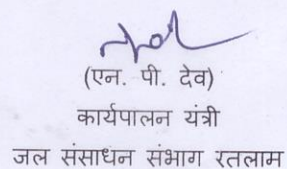 (एन. पी. देव)
कार्यपालन यंत्री
जल संसाधन संभाग रतलाम